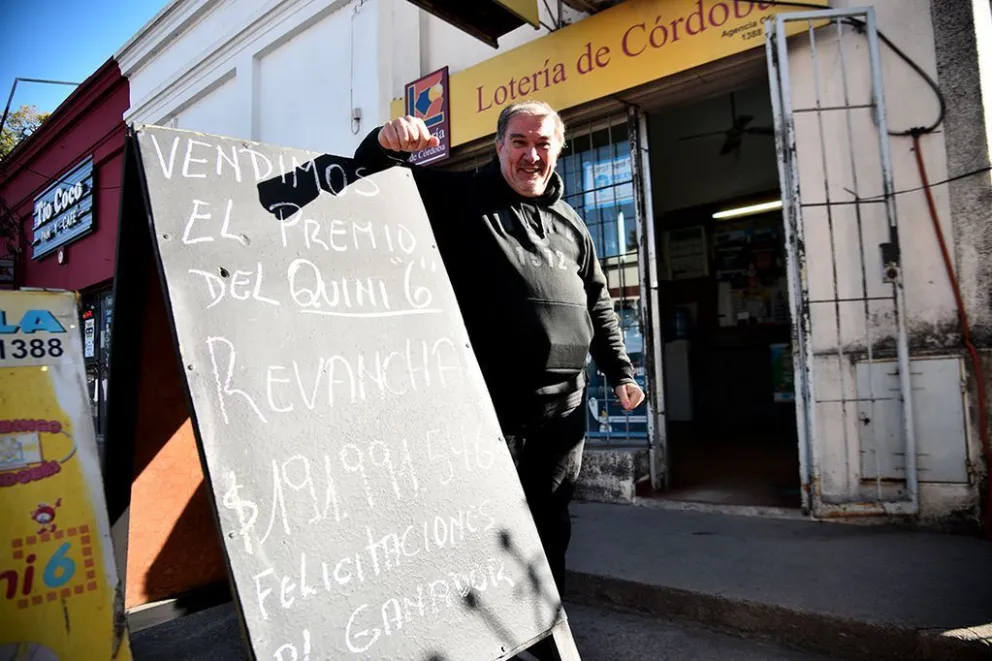 VENDIMOS
EL PREMIO
DEL QUINI "6"
REVANCHA
$191.991.546
FELICITACIONES
AL GANADOR
Lotería de Córdoba
Agencia
1388
de Córdoba
Tío Coco
PAN Y CAFÉ
LA
1388
ni 6
1972